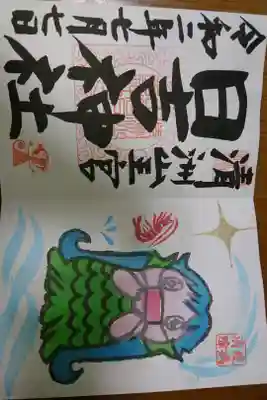 清洲山王宮
日吉神社
令和二年七月七日